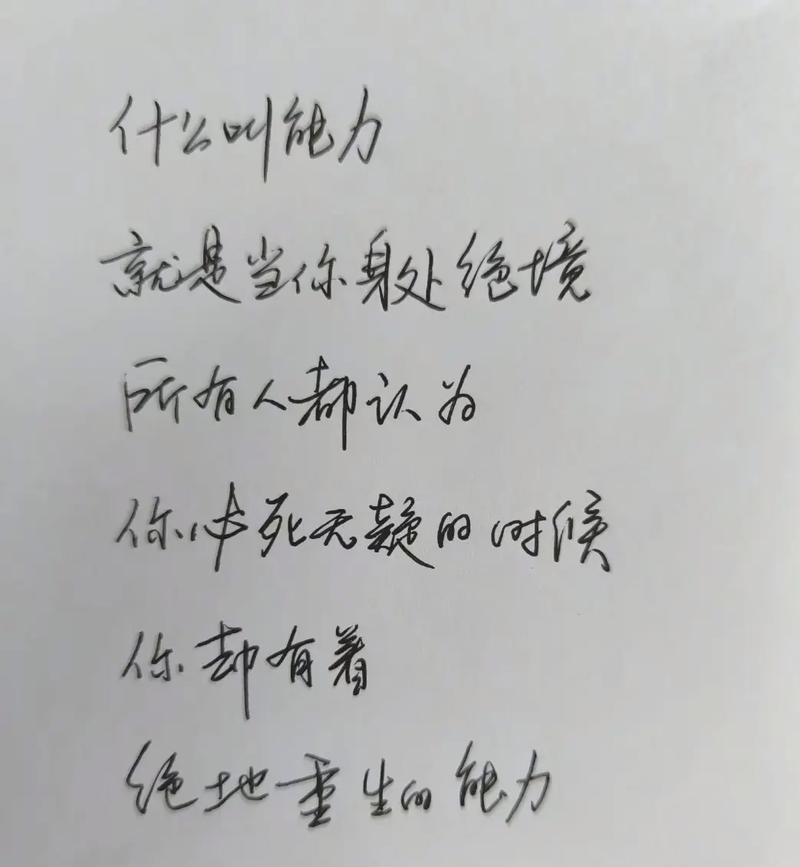 什么叫能力
就是当你身处绝境
所有人都认为
你必死无疑的时候
你却有着
绝地重生的能力